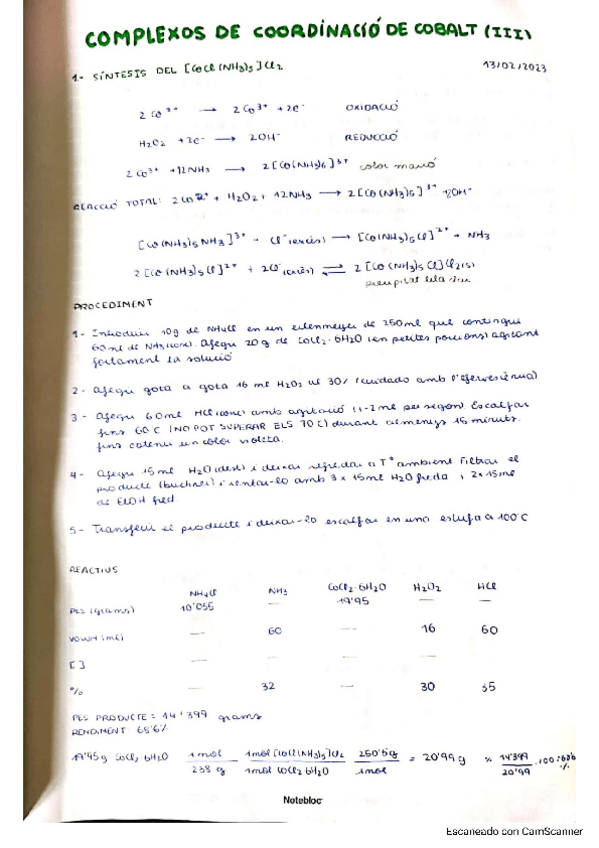 COMPLEXOS DE COORDINACIÓ DE COBALT (III)
1.- SÍNTESIS DEL [CoCl(NH3)5]Cl2
13/02/2023
2 Co2+ → 2 Co3+ + 2e- OXIDACIÓ
H2O2 + 2e- → 2OH- REDUCCIÓ
2 Co3+ + 12NH3 → 2[Co(NH3)6]3+ color marró
REACCIÓ TOTAL: 2Co2+ + H2O2 + 12NH3 → 2[Co(NH3)6]3+ 2OH-
[Co(NH3)5NH3]3+ - Cl-(excés) → [Co(NH3)5Cl]2+ + NH3
2[Co(NH3)5Cl]2+ + 2Cl-(excés) ⇌ 2[Co(NH3)5Cl]Cl2(s)
precipitat
PROCEDIMENT
1- Introduir 10g de NH4Cl en un erlenmeyer de 250ml que contingui
60ml de NH3(conc). Afegir 20g de CoCl2·6H2O (en petites porcions) agitant
fortament la solució
2- Afegir gota a gota 16 ml H2O2 al 30% (cuidado amb l'efervescència)
3- Afegir 60ml HCl(conc) amb agitació (1-2ml per segon). Escalfar
fins 60°C (NO POT SUPERAR ELS 70°C) durant almenys 15 minuts.
fins obtenir un color violeta.
4- Afegir 15ml H2O(dest) i deixar refredar a Tª ambient Filtrar el
producte (buchner) i rentar-lo amb 3x 15ml H2O freda i 2x15ml
de EtOH fred
5- Transferir el producte i deixar-lo escalfar en una estufa a 100°C
REACTIUS
NH4Cl NH3 CoCl2·6H2O H2O2 HCl
PES (grams) 10'055 — 19'95 — —
VOLUM (ml) — 60 — 16 60
[ ] — — — — —
% — 32 — 30 35
PES PRODUCTE = 14'399 grams
RENDIMENT 68'6%
19'95g CoCl2 6H2O 1mol / 238 g 1mol [CoCl(NH3)5]Cl2 / 1mol CoCl2 6H2O 250'5g / 1mol = 20'99 g 14'399 / 20'99 · 100
Notebloc
Escaneado con CamScanner